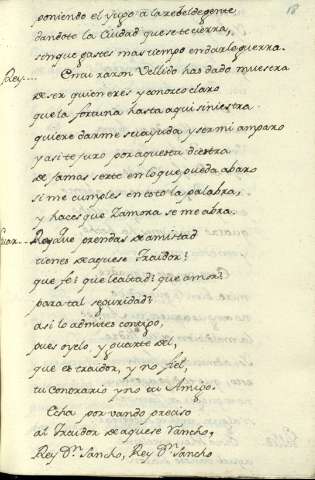 18
poniendo el yugo a la rebelde gente
dandote la Ciudad que se te cierra,
sin que gastes mas tiempo en darle guerra.
Rey... Cmai raron Vellido has dado muestra
de ser quien eres y conozco claro
que la fortuna hasta aqui siniestra
quiere darme su ayuda y ser mi amparo
y asi te juro por aquesta diestra
de jamas serte en lo que pueda abaro
si me cumples en toto la palabra,
y haces que Zamora se me abra.
Rey que prendas de amistad
tienes de aquese Traidor?
que fe? que lealtad? que amor?
para tal seguridad?
asi lo admites contigo,
pues oyelo y guarte del,
que es traidor, y no fiel,
tu contrario y no tu Amigo.
Echa por vando preciso
al Traidor de aquese Sancho,
Rey Dn. Sancho, Rey Dn. Sancho